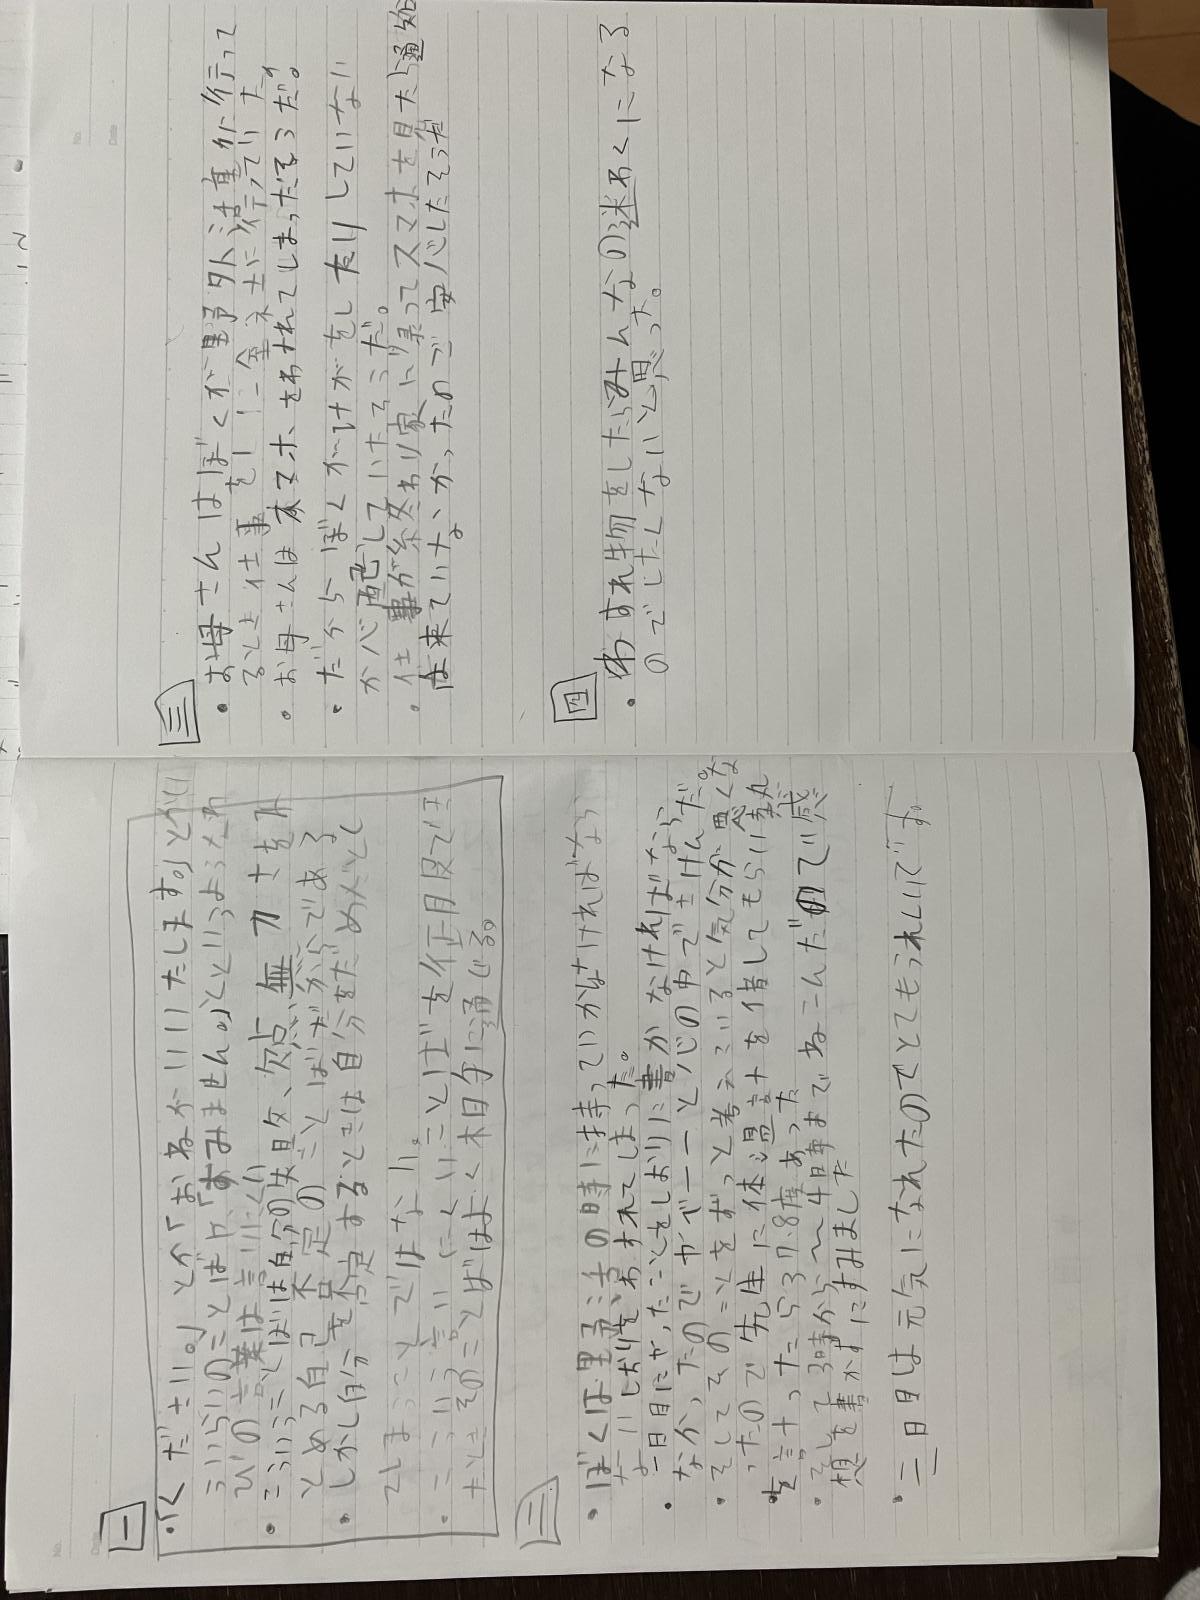 一
・「ください。」とか「おねがいいたします。」とかい
うぐらいのことばや、「すみません。」というようなわ
びの言葉は言いにくい
・こういうことばは自分の失敗、欠点、無力さをみ
とめる自己否定のことばだからである
・しかし自分を否定するときは自分をだめだとし
てしまうことではない。
・こういう言いにくいことばを征服でき
たときそのことばはよく相手に通じる。
二
・ぼくは野活の時に持っていかなければなら
ないしおりをわすれてしまった。
・一日目にやったことをしおりに書かなければなら
なかったのでやべーーと心の中でさけんだ。
・そしてそのことをずっと考えていると気分が悪くな
ったので先生に体温計を借してもらい熱
を計ったら37.8度あった
・そして3時から〜4時までねこんだので感
想を書かずにすみました
・二日目は元気になれたのでとてもうれしいです。
三
・お母さんはぼくが野外活動に行って
るとき仕事をしに会社に行っていた
・お母さんはスマホをわすれてしまっだそうだ。
・だからぼくがけがをしたりしていない
か心配していたそうだ。
・仕事が終わり家に帰ってスマホを見たら通知
が来ていなかったので安心したそうだ
四
・わすれ物をしたらみんなの迷わくになる
のでしたくないと思った。